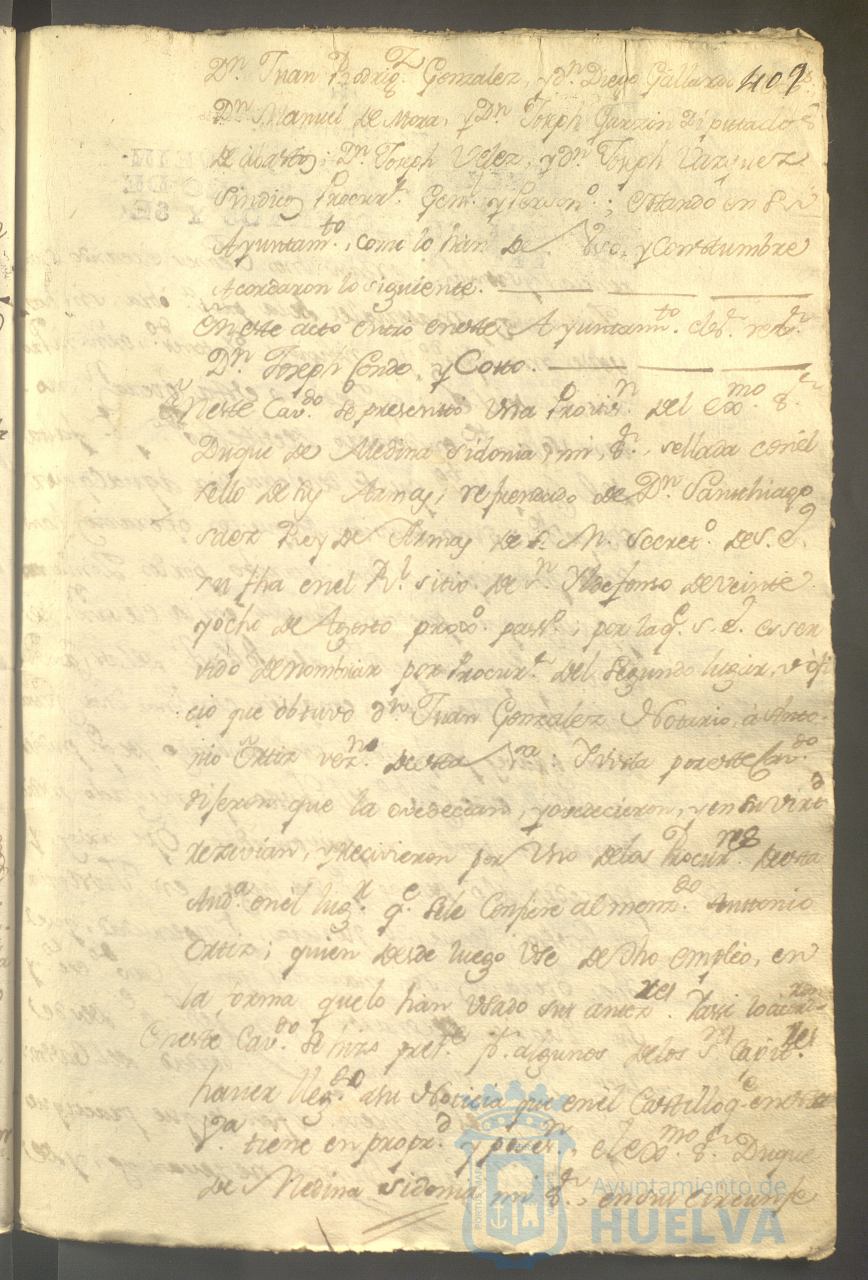 Dn. Juan Rodrigz. Gonzalez, y dn. Diego Gallardo 409
Dn. Manuel de Mora, y Dn. Joseph Garzon Diputados
de abastos; Dn. Joseph Velez, y dn. Joseph Vazquez
Sindicos Procurr. Genl. y Persono.; estando en su
Ayuntamto. como lo han de Uso, y Constumbre
Acordaron lo siguiente.
en este acto entro en este Ayuntamto. el Sr. regr.
Dn. Joseph Condo, y Coto.
En este Cavdo. se presentó una Provisn. del Exmo. Sr.
Duque de Medina Sidonia, mi Sr., sellada con el
sello de sus Armas, refrendado de Dn. Santhiago
Saez Rey de Armas de S. M. Secreto. de S. E.
su fha en el Rl. sitio de Sn. Yldefonso de veinte
y ocho de Agosto proxo. pasdo.; por la qe. S. E. es ser
vido de nombrar por Procurr. del Segundo lugar, u ofi
cio que obtuvo dn. Juan Gonzalez Notario, a Anto-
nio Ortiz vezno. de esta Va.; Y vista por este Cavdo.
dijeron que la ovedecian, y ovedecieron, y en su virtd
rezivian, y recivieron por Uno de los Procurres. de esta
Auda. en el lugr. qe. se le Confiere al menzdo. Anttonio
Ortiz; quien desde luego Use de dho empleo, en
la forma que lo han Usado sus antezres. Y assi lo acordaron
En este Cavdo. se hizo preste. pr. algunos de los Sres. Capitres.
haver llegdo. a su Noticia que en el Castillo qe. en esta
Va. tiene en propd. y posesn. el Exmo. Sr. Duque
de Medina Sidonia mi Sr., en su circunfe
Ayuntamiento de
HUELVA